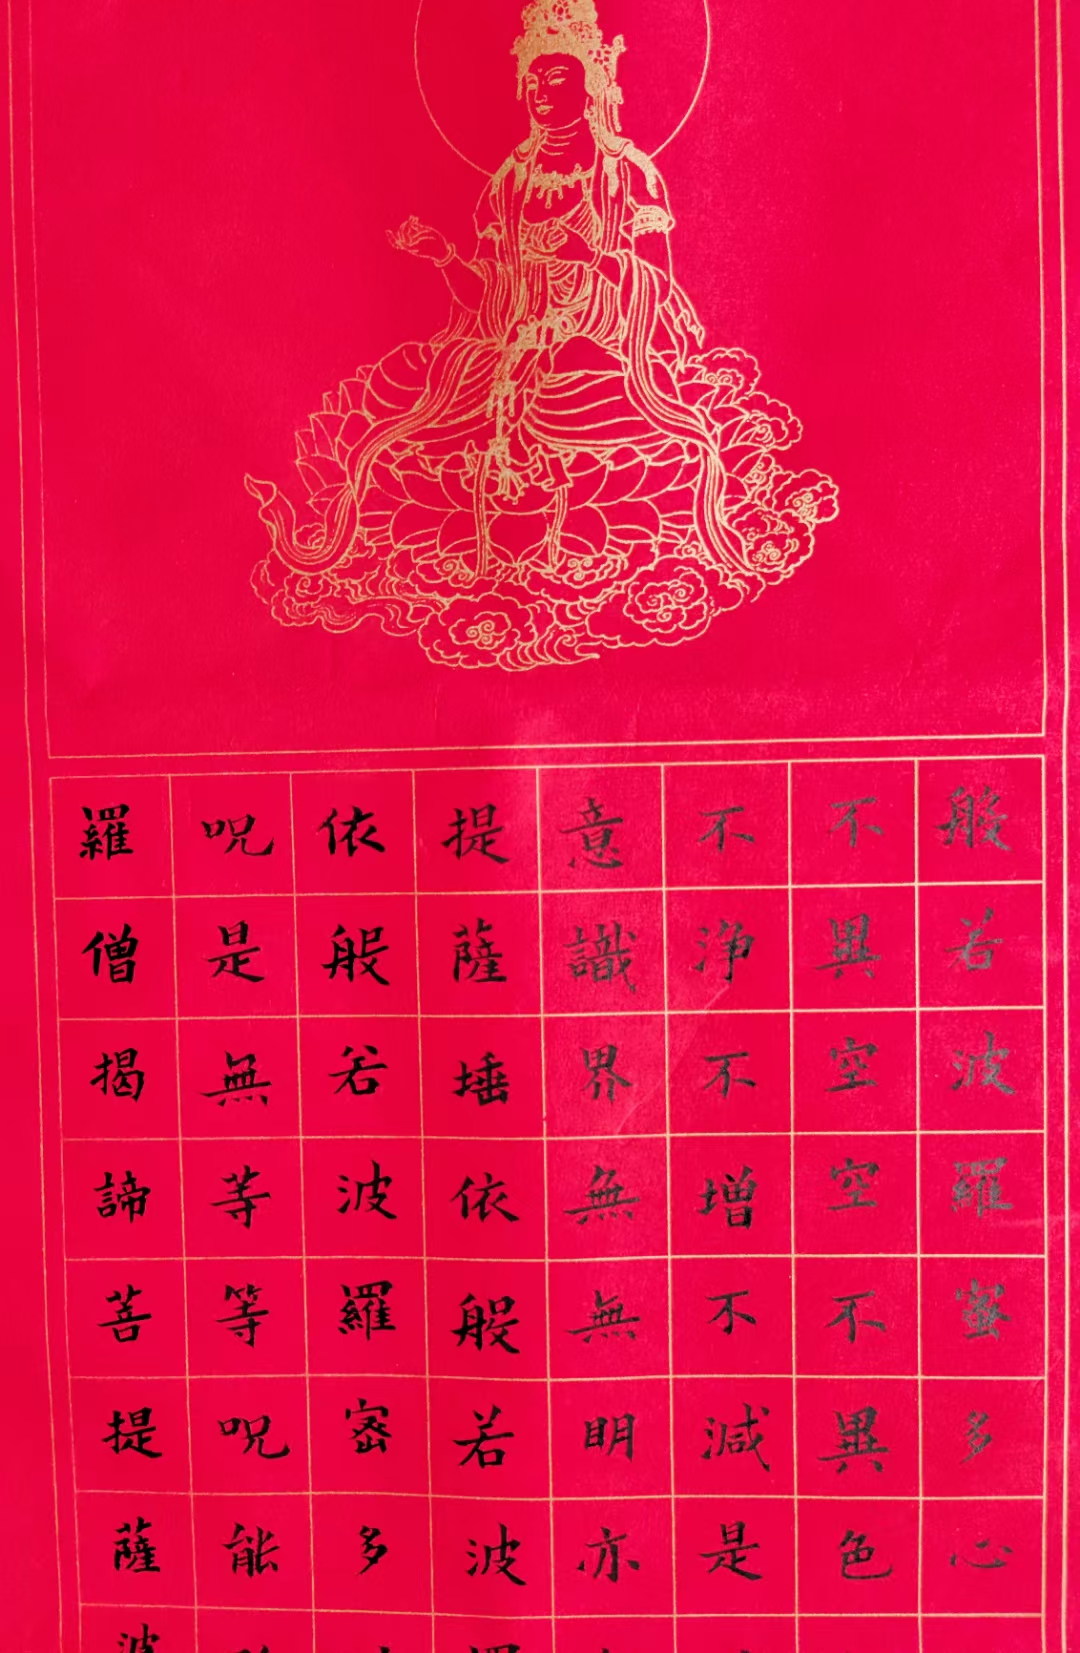 般若波羅蜜多心
不異空空不異色
不淨不增不減是
意識界無無明亦
提薩埵依般若波
依般若波羅密多
呪是無等等呪能
羅僧揭諦菩提薩波